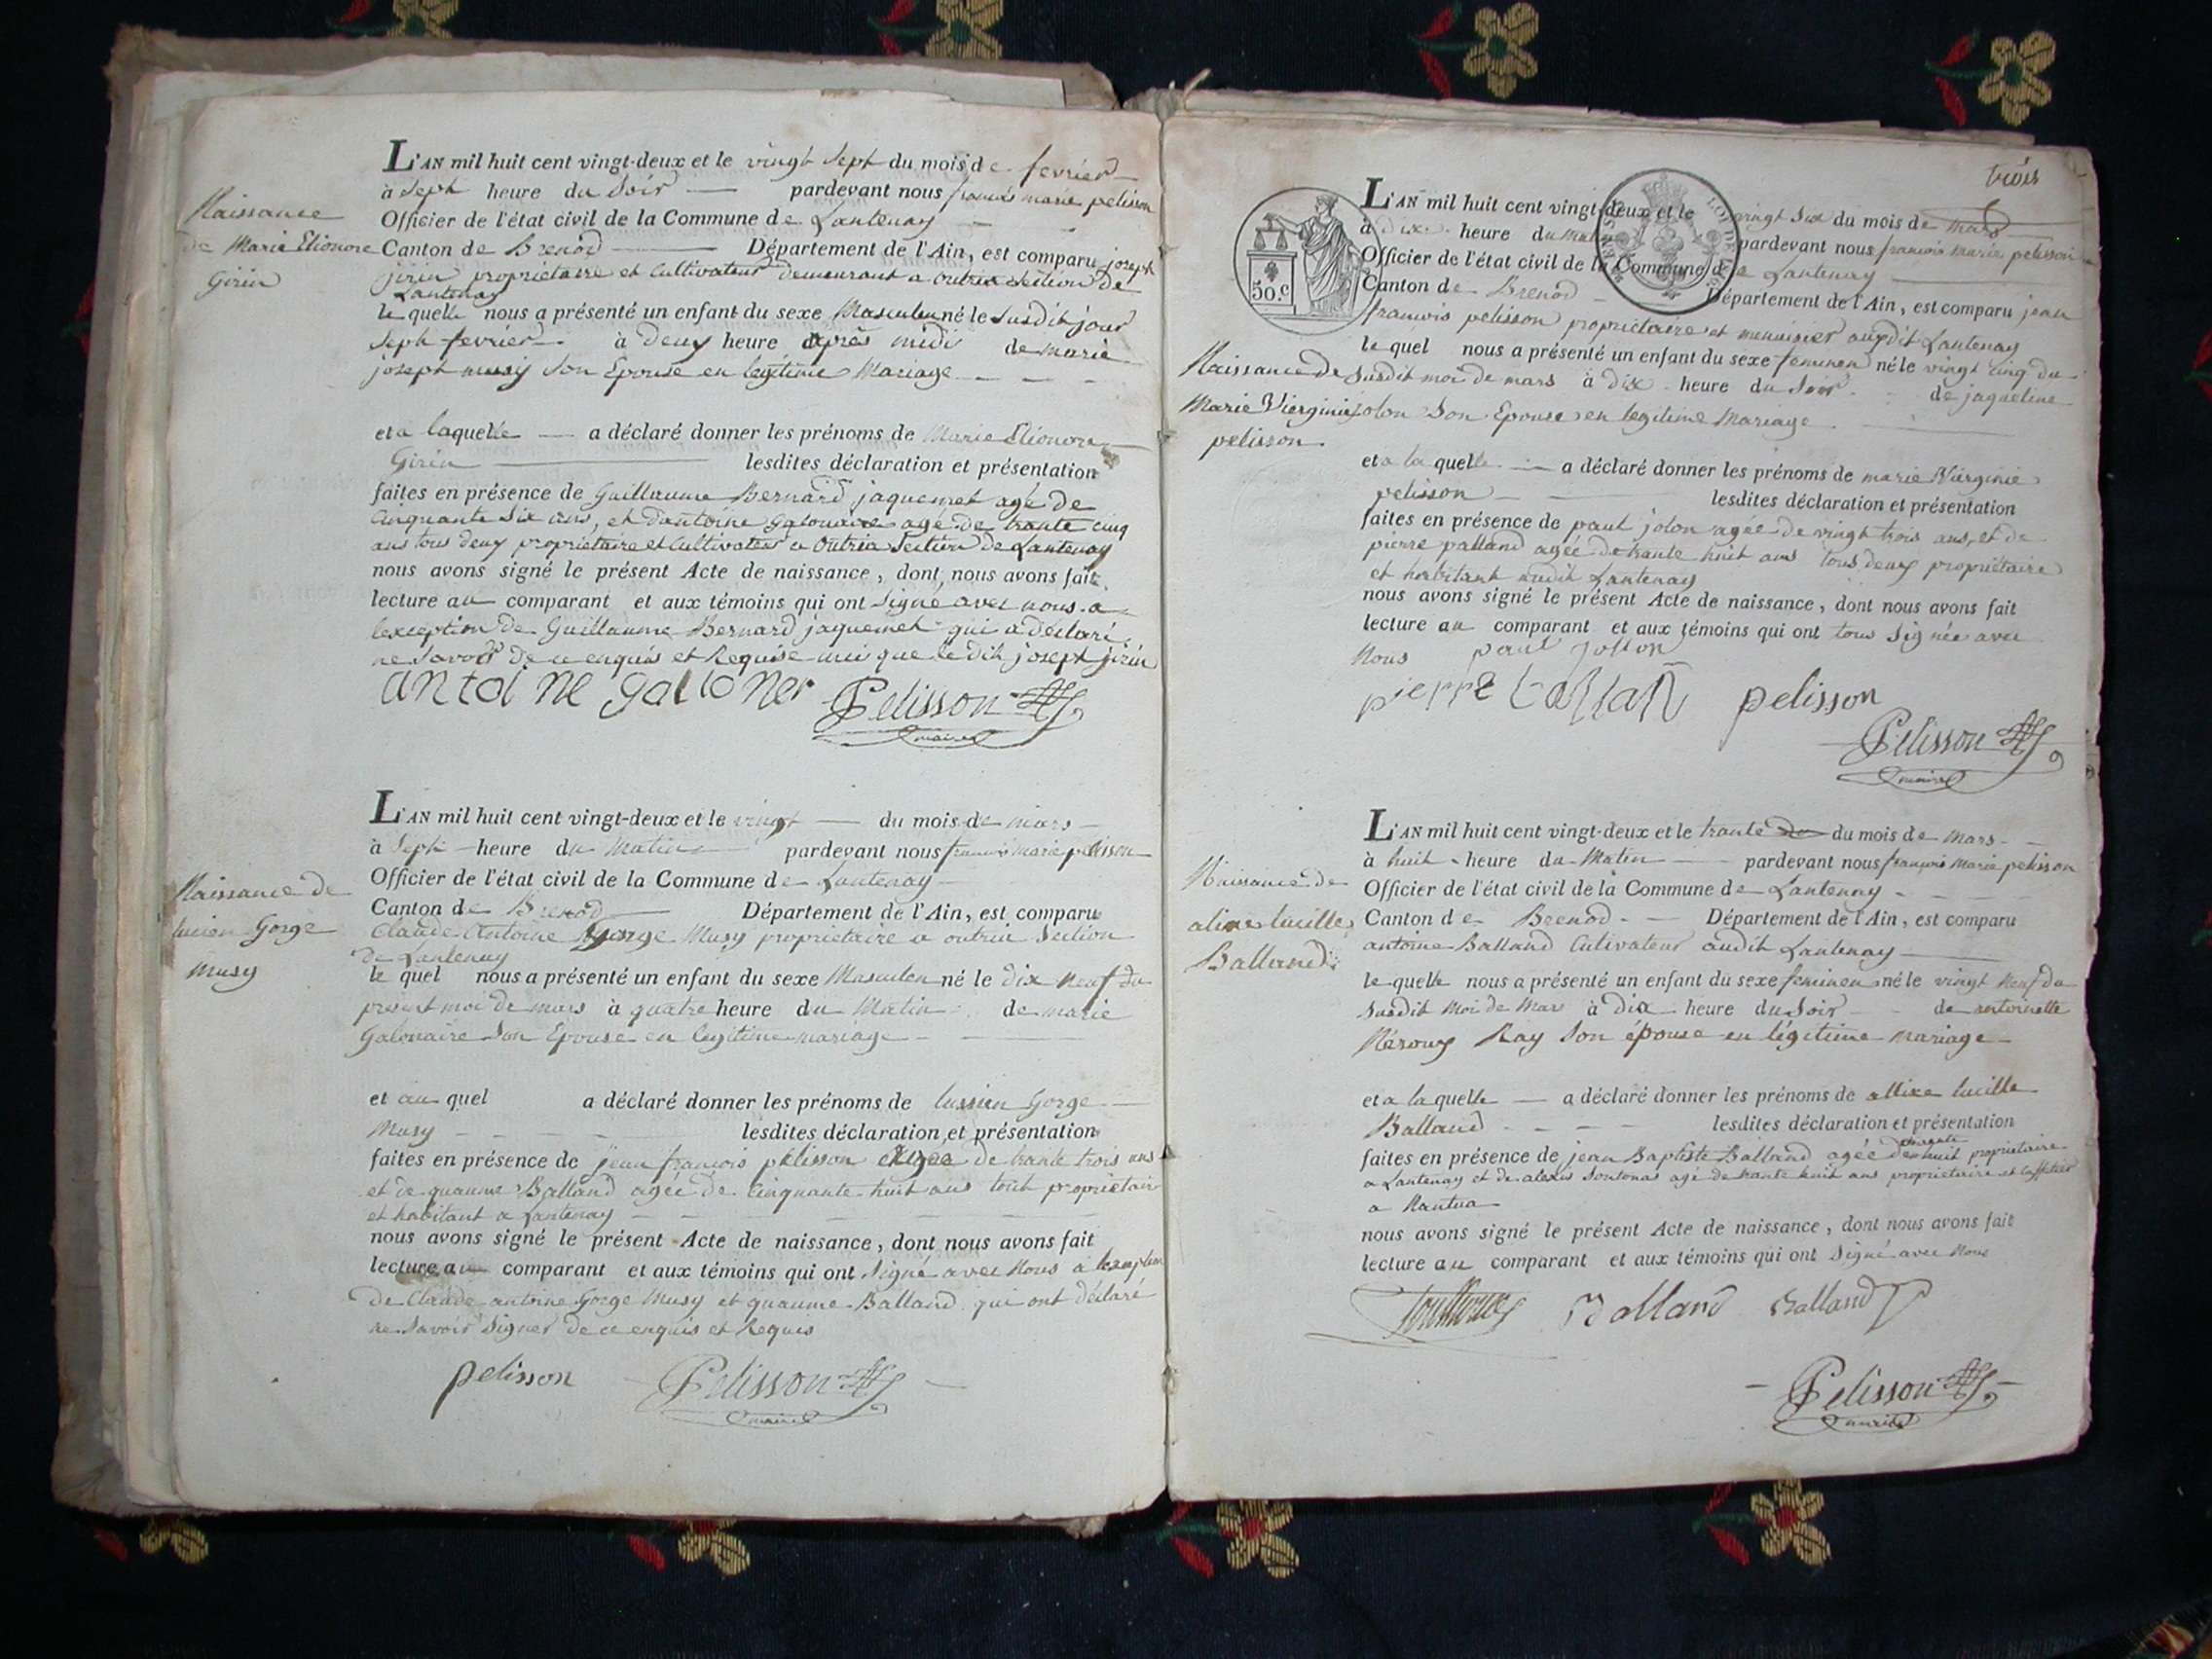 Naissance
de Marie Elionore
Girin
L'AN mil huit cent vingt-deux et le vingt sept du mois de fevrier
à sept heure du soir pardevant nous francois marie pelisson
Officier de l'état civil de la Commune de Lantenay
Canton de Brenod Département de l'Ain, est comparu joseph
jirin propriétaire et cultivateur demeurant a outria section de
Lantenay
le quelle nous a présenté un enfant du sexe Masculen né le susdit jour
sept fevrier à deux heure après midi de marie
joseph musy son Epouse en legitime Mariage
et a laquelle a déclaré donner les prénoms de Marie Elionore
Girin lesdites déclaration et présentation
faites en présence de Guillaume Bernard jaquemet agé de
cinquante six ans, et dantoine galonaire agé de trante cinq
ans tous deux propriétaire et cultivateur a outria section de Lantenay
nous avons signé le présent Acte de naissance, dont nous avons fait
lecture au comparant et aux témoins qui ont signé avec nous a
lexception de Guillaume Bernard jaquemet qui a déclaré
ne savoir de ce enquis et Requise insi que le dit joseph jirin
antoine galloner Pelisson
maire
Naissance de
lucien Gorge
Musy
L'AN mil huit cent vingt-deux et le vingt du mois de mars
à sept heure du Matin pardevant nous francois marie pelisson
Officier de l'état civil de la Commune de Lantenay
Canton de Brenod Département de l'Ain, est comparu
Claude Antoine Gorge Musy propriétaire a outria section
de Lantenay
le quel nous a présenté un enfant du sexe Masculen né le dix neuf du
present moi de mars à quatre heure du Matin de marie
Galonaire son Epouse en legitime mariage
et au quel a déclaré donner les prénoms de lussien Gorge
Musy lesdites déclaration et présentation
faites en présence de jean francois pelisson de trante trois ans
et de guaume Balland agée de cinquante huit ans tout propriétair
et habitant a Lantenay
nous avons signé le présent Acte de naissance, dont nous avons fait
lecture au comparant et aux témoins qui ont signé avec Nous a
De Claude antoine Gorge Musy et guaume Balland qui ont déclaré
ne savoir signer de ce enquis et Requis
pelisson Pelisson
maire
trois
50.c
L'AN mil huit cent vingt-deux et le vingt six du mois de mars
à dix heure du matin pardevant nous francois marie pelisson
Officier de l'état civil de la Commune de Lantenay
Canton de Brenod Département de l'Ain, est comparu jean
francois pelisson propriétaire et menuisier audit Lantenay
le quel nous a présenté un enfant du sexe femenen né le vingt cinq du
Naissance de
Marie Vierginie
pelisson
susdit moi de mars à dix heure du soir de jaqueline
jolon son Epouse en legitime Mariage
et a la quelle a déclaré donner les prénoms de marie Vierginie
pelisson lesdites déclaration et présentation
faites en présence de paul jolon agée de vingt trois ans, et de
pierre palland agée de trante huit ans tous deux propriétaire
et habitant audit Lantenay
nous avons signé le présent Acte de naissance, dont nous avons fait
lecture au comparant et aux témoins qui ont tous signée avec
Nous paul jollon
pierre pelisson
Pelisson
maire
Naissance de
lucille
Balland
L'AN mil huit cent vingt-deux et le trante du mois de mars
à huit heure du Matin pardevant nous françois Marie pelisson
Officier de l'état civil de la Commune de Lantenay
Canton de Brenod Département de l'Ain, est comparu
antoine Balland Cultivateur audit Lantenay
le quelle nous a présenté un enfant du sexe femenen né le vingt neuf du
susdit moi de Mars à dix heure du soir de antoinette
Ray son épouse en légitime mariage
et a la quelle a déclaré donner les prénoms de lucille
Balland lesdites déclaration et présentation
faites en présence de jean Baptiste Balland agée de huit propriétaire
a Lantenay et de alexis Sontonas agé de trante huit ans propriétaire et caffetier
a Nantua
nous avons signé le présent Acte de naissance, dont nous avons fait
lecture au comparant et aux témoins qui ont signé avec Nous
Balland Balland
Pelisson
maire